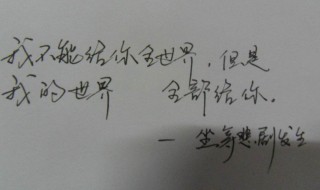 我不能给你全世界，但是
我的世界 全部给你.
— 坐等悲剧发生